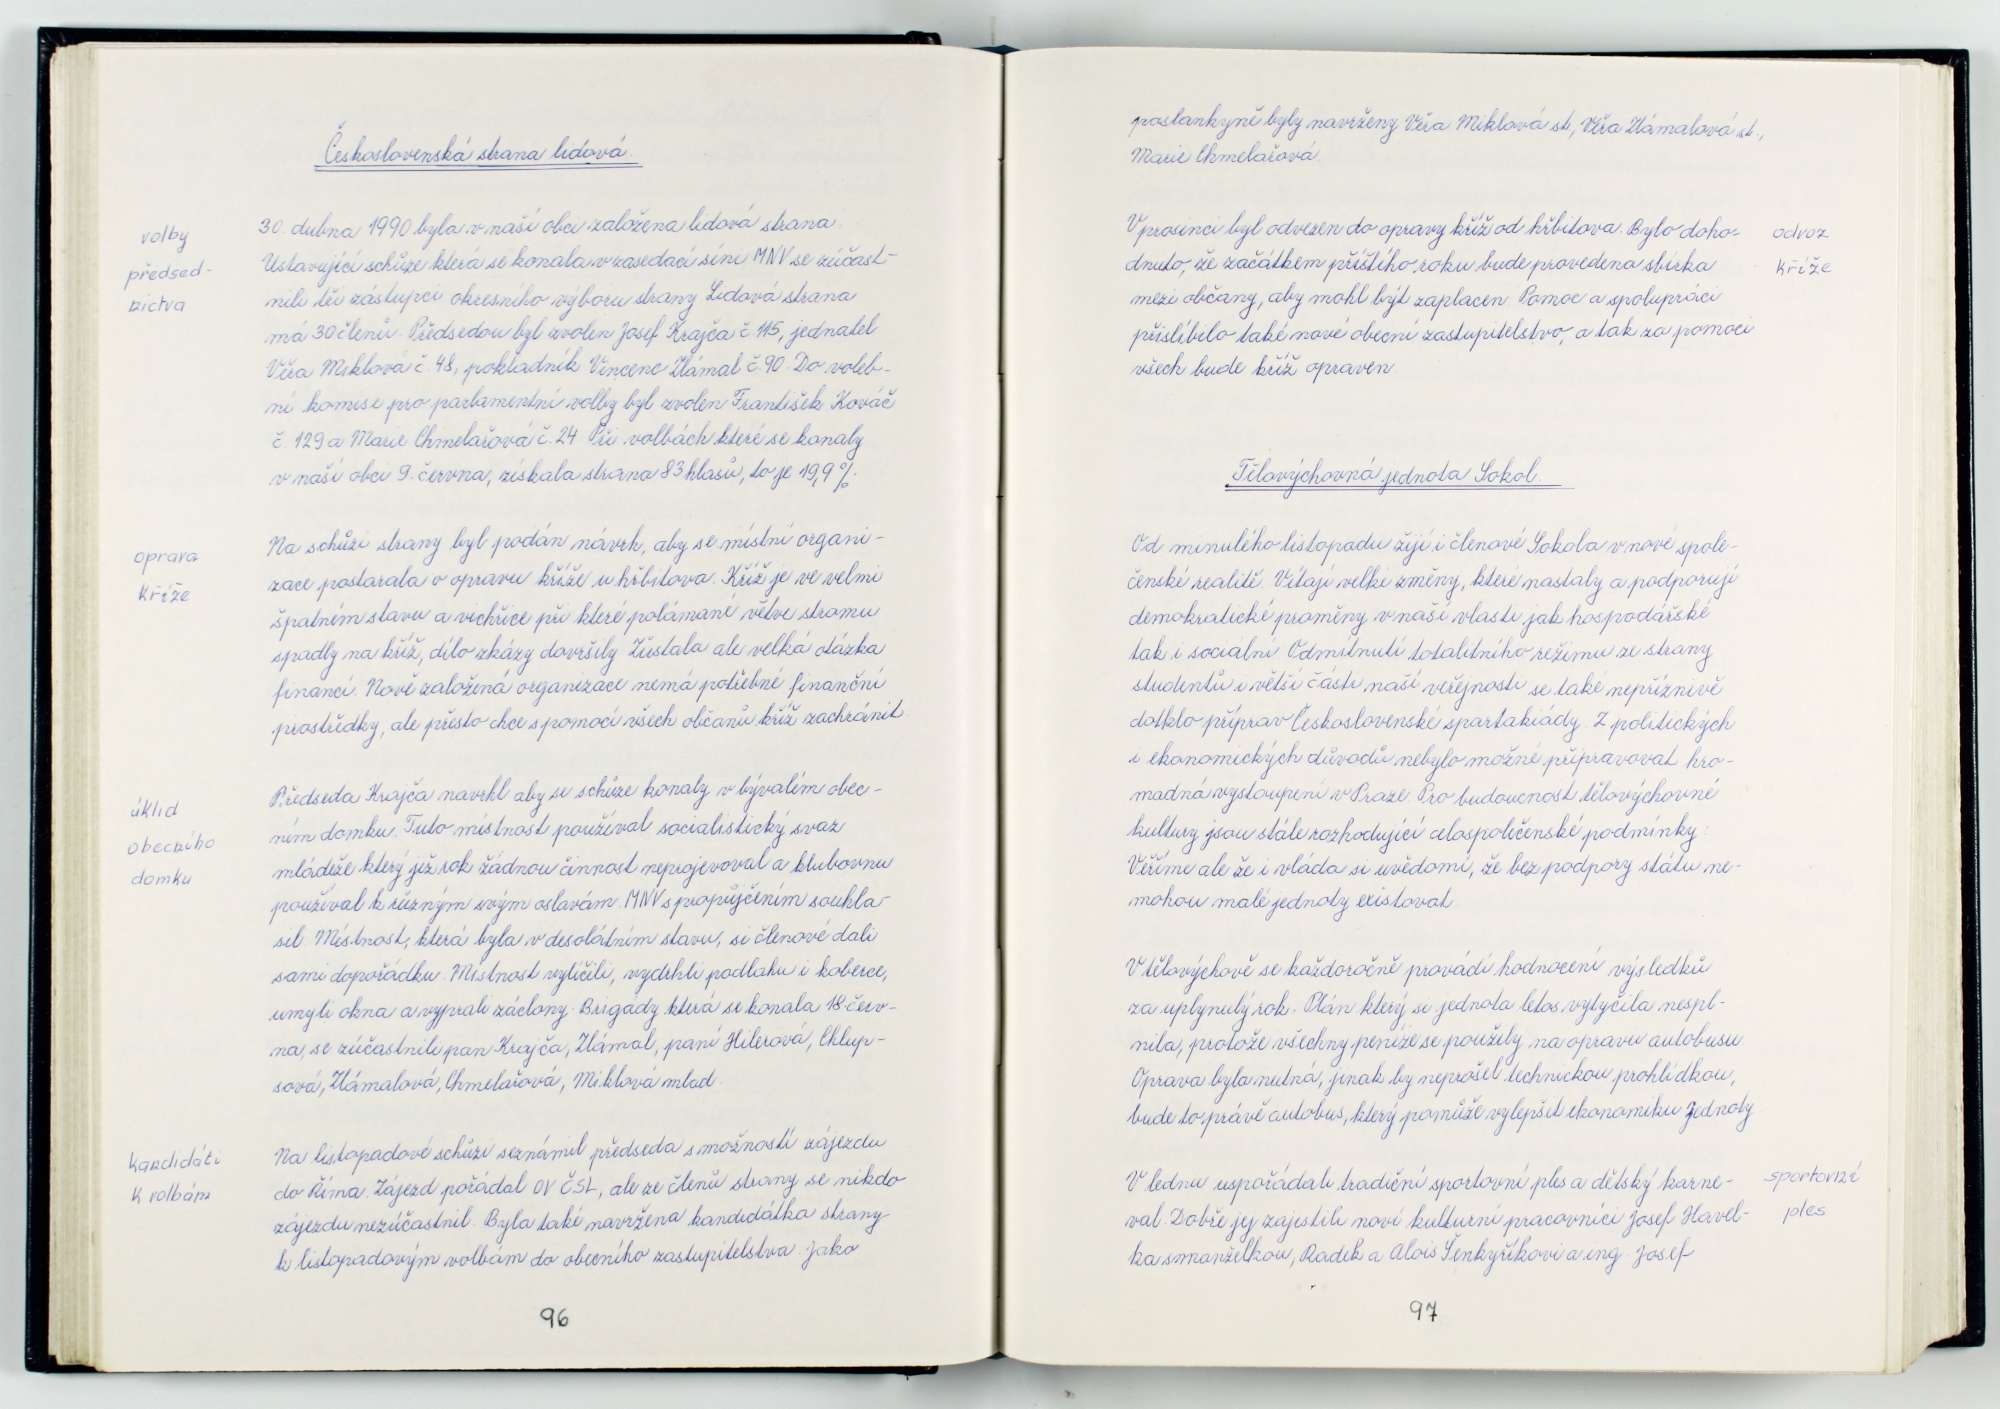 Československá strana lidová.
volby
předsed-
nictva
30. dubna 1990 byla v naší obci založena lidová strana.
Ustavující schůze která se konala v zasedací síni MNV se zúčast-
nili tři zástupci okresního výboru strany Lidová strana
má 30 členů. Předsedou byl zvolen Josef Krajča č. 115, jednatel
Věra Miklová č. 48, pokladník Vincenc Zlámal č. 90. Do voleb-
ní komise pro parlamentní volby byl zvolen František Kováč
č. 129 a Marie Chmelařová č. 24 Při volbách které se konaly
v naší obci 9. června, získala strana 83 hlasů, to je 19,9 %.
oprava
kříže
Na schůzi strany byl podán návrh, aby se místní organi-
zace postarala o opravu kříže u hřbitova. Kříž je ve velmi
špatném stavu a vichřice při které polámané větve stromu
spadly na kříž, dílo zkázy dovršily Zůstala ale velká otázka
financí. Nově založená organizace nemá potřebné finanční
prostředky, ale přesto chce s pomocí všech občanů kříž zachránit
úklid
obecního
domku
Předseda Krajča navrhl aby se schůze konaly v bývalém obec-
ním domku. Tuto místnost používal socialistický svaz
mládeže který již rok žádnou činnost neprojevoval a klubovnu
používal k různým svým oslavám. MNV s propůjčením souhla-
sil. Místnost, která byla v desolátním stavu, si členové dali
sami dopořádku. Místnost vylíčili, vydrhli podlahu i koberce,
umyli okna a vyprali záclony. Brigády která se konala 18. červ-
na, se zúčastnili pan Krajča, Zlámal, paní Hilerová, Chlup-
sová, Zlámalová, Chmelařová, Miklová mlad.
kandidáti
k volbám
Na listopadové schůzi seznámil předseda s možností zájezdu
do Říma. Zájezd pořádal OV ČSL, ale ze členů strany se nikdo
zájezdu nezúčastnil. Byla také navržena kandidátka strany
k listopadovým volbám do obecního zastupitelstva. Jako
96
poslankyně byly navrženy Věra Miklová st., Věra Zlámalová st.,
Marie Chmelařová.
V prosinci byl odvezen do opravy kříž od hřbitova. Bylo doho-
dnuto, že začátkem příštího roku bude provedena sbírka
mezi občany, aby mohl být zaplacen Pomoc a spolupráci
přislíbilo také nové obecní zastupitelstvo, a tak za pomoci
všech bude kříž opraven
odvoz
kříže
Tělovýchovná jednota Sokol.
Od minulého listopadu žijí i členové Sokola v nové spole-
čenské realitě. Vítají velké změny, které nastaly a podporují
demokratické proměny v naší vlasti jak hospodářské
tak i sociální Odmítnutí totalitního režimu ze strany
studentů i větší části naší veřejnosti se také nepříznivě
dotklo příprav Československé spartakiády. Z politických
i ekonomických důvodů nebylo možné připravovat hro-
madná vystoupení v Praze. Pro budoucnost tělovýchovné
kultury jsou stále rozhodující celospolečenské podmínky.
Věříme ale že i vláda si uvědomí, že bez podpory státu ne-
mohou malé jednoty existovat.
V tělovýchově se každoročně provádí hodnocení výsledků
za uplynulý rok. Plán který si jednota letos vytyčila nespl-
nila, protože všechny peníze se použily na opravu autobusu
Oprava byla nutná, jinak by neprošel technickou prohlídkou,
bude to právě autobus, který pomůže vylepšit ekonomiku jednoty
V lednu uspořádali tradiční sportovní ples a dětský karne-
val. Dobře jej zajistili noví kulturní pracovníci Josef Havel-
ka s manželkou, Radek a Alois Šenkyříkovi a ing. Josef
sportovní
ples
97